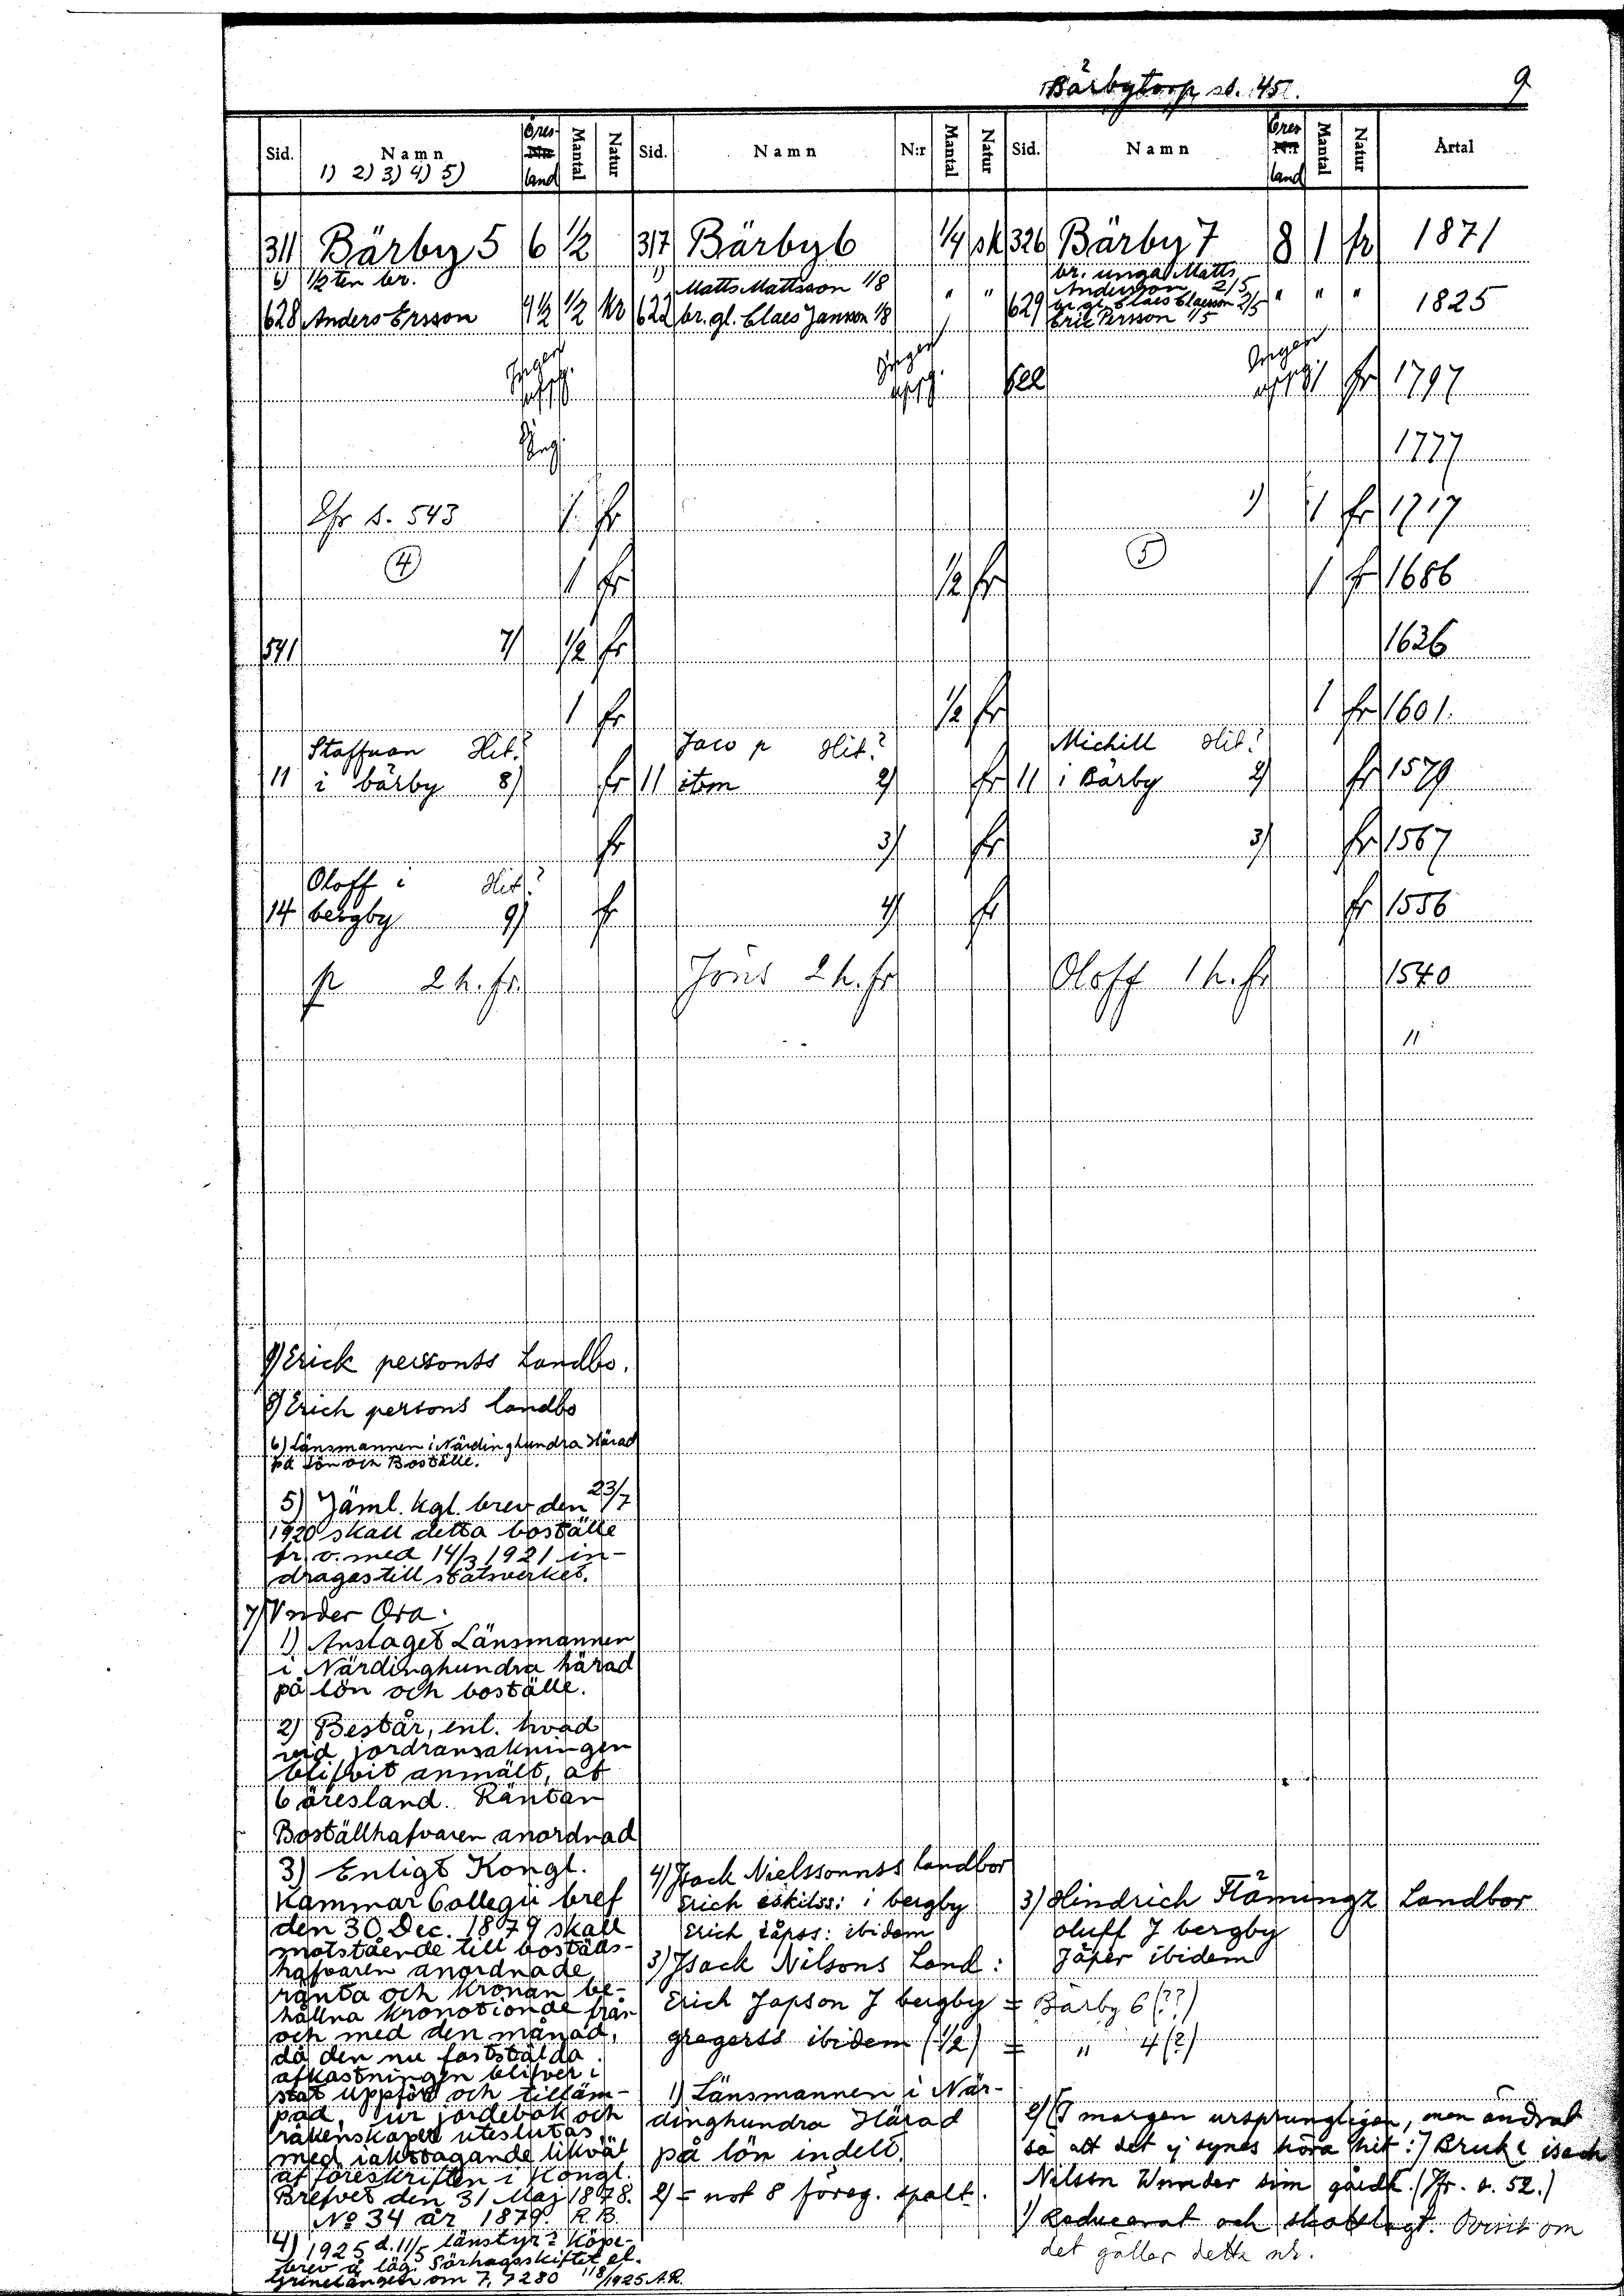 Bärbytorp sd. 451.
9
Sid. Namn Öres- N:r land Mantal Natur Sid. Namn N:r Mantal Natur Sid. Namn Öres N:r land Mantal Natur Årtal
1) 2) 3) 4) 5)
311 Bärby 5 6 1/2 317 Bärby 6 1/4 sk 326 Bärby 7 8 1 fr 1871
6) 1/2 ten br. 1) Matts Mattsson 1/8 " " br. unga Matts
Andersson 2/5
628 Anders Ersson 4 1/2 1/2 Kr 622 br. gl. Claes Janson 1/8 629 br. gl. Claes Claesson 2/5 " " " 1825
Eric Persson 1/5
Ingen uppg. Ingen uppg. Ingen uppg. 1 fr 1797
Ing. 1777
Jfr s. 543 1 fr 1) 1 fr 1717
4 1 fr 1/2 fr 5 1 fr 1686
541 7) 1/2 fr 1626
1 fr 1/2 fr 1 fr 1601.
Staffuan Hit? Jaco p Hit? Michill Hit?
11 i bärby 8) fr 11 itm 2) fr 11 i Bärby 2) fr 1579
fr 3) fr 3) fr 1567
Oloff i Hit?
14 bergby 9) fr 4) fr fr 1556
p 2 h. fr. Jöns 2 h. fr Oloff 1 h. fr 1540
"
9) Erick personss Landbo.
8) Erich persons landbo
6) Länsmannen i Närdinghundra Härad
på lön och Boställe.
5) Jäml. kgl. brev den 23/7
1920 skall detta boställe
fr. o. med 14/3 1921 in-
dragas till statsverket.
7) Vnder Ora.
1) Anslaget Länsmannen
i Närdinghundra härad
på lön och boställe.
2) Består, enl. hvad
vid jordransakningen
blifvit anmält, af
6 öresland. Räntan
Boställhafvaren anordnad
3) Enligt Kongl.
Kammar Collegii bref
den 30 Dec. 1879 skall
motstående till boställs-
hafvaren anordnade
ränta och Kronan be-
hållna Kronotionde från
och med den månad,
då den nu fastställda
afkastningen blifver i
stat uppförd och tilläm-
pad, ur jordebok och
räkenskaper uteslutas
med iakttagande likväl
af föreskriften i Kongl.
Brefvet den 31 Maj 1878.
No 34 år 1879. R.B.
4) 1925 d. 11/5 länstyr? Köpe-
brev å läg.
om 7, 7280 1/8 1925 A.R.
4) Jsack Nielssonnss Landbor
Erich eskilss: i bergby
Erich : ibidem
3) Jsack Nilsons Land:
Erich Japson J bergby = Bärby 6 (??)
gregerss ibidem (1/2) = " 4 (?)
1) Länsmannen i När-
dinghundra Härad
på lön indelt.
2) = not 8 föreg. spalt.
3) Hindrich Flämingz Landbor
oluff J bergby
Jäper ibidem
2) (I margen ursprungligen, men ändrat
så att det ej synes höra hit:) Bruk isach
Nilson Wunder sin gårdh. (Jfr. s. 52.)
1) Reducerat och skattlagt. Ovisst om
det gäller detta nr.